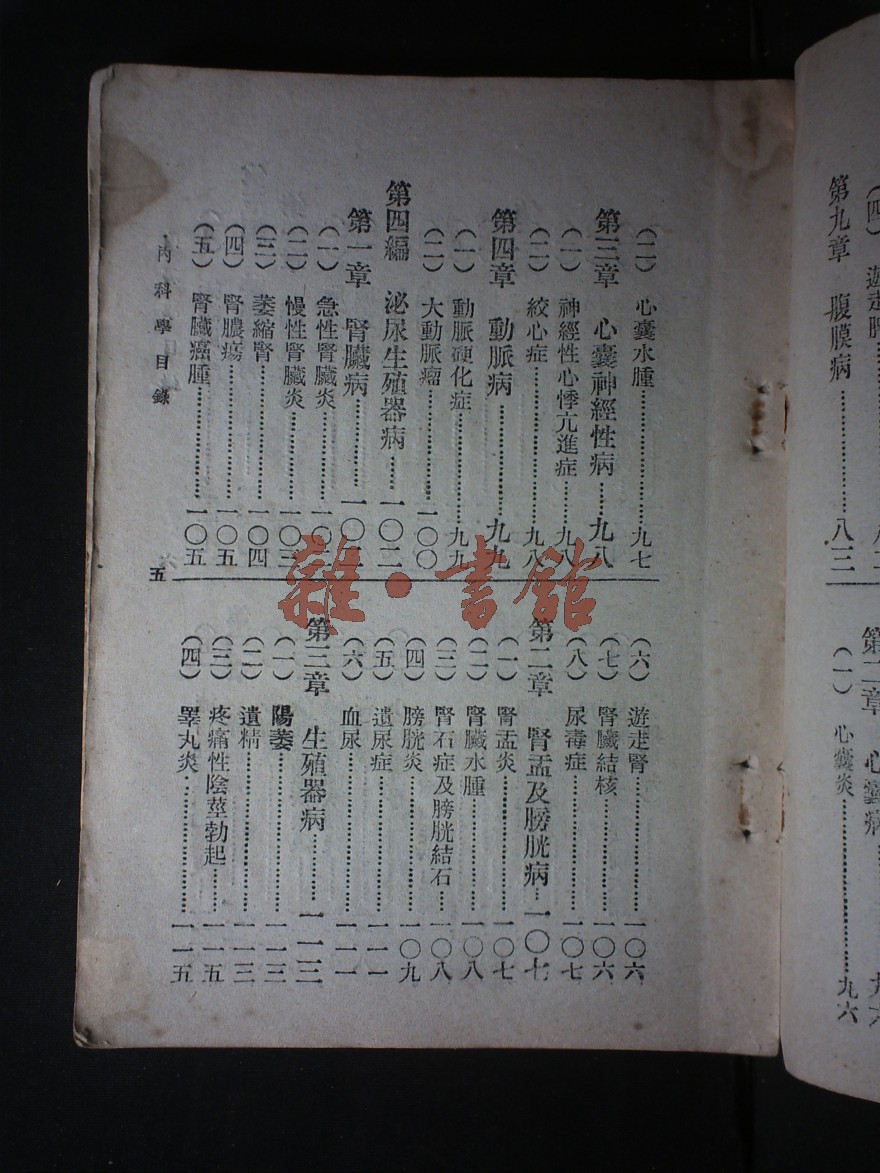 (二) 心囊水腫…………九七
第三章 心囊神經性病…九八
(一) 神經性心悸亢進症……九八
(二) 絞心症……………九八
第四章 動脈病…………九九
(一) 動脈硬化症…………九九
(二) 大動脈瘤…………一〇〇
第四編 泌尿生殖器病……一〇二
第一章 腎臟病…………一〇二
(一) 急性腎臟炎…………一〇二
(二) 慢性腎臟炎…………一〇三
(三) 萎縮腎……………一〇四
(四) 腎膿瘍……………一〇五
(五) 腎臟癌腫…………一〇五
(六) 遊走腎……………一〇六
(七) 腎臟結核…………一〇六
(八) 尿毒症……………一〇七
第二章 腎盂及膀胱病…一〇七
(一) 腎盂炎……………一〇七
(二) 腎臟水腫…………一〇八
(三) 腎石症及膀胱結石……一〇八
(四) 膀胱炎……………一〇九
(五) 遺尿症……………一一一
(六) 血尿………………一一一
第三章 生殖器病………一一三
(一) 陽萎………………一一三
(二) 遺精………………一一三
(三) 疼痛性陰莖勃起………一一五
(四) 睪丸炎……………一一五
內科學目錄
五
雜·書館
(四) 遊走
第九章 腹膜病…………八三
第二章 心囊病
(一) 心囊炎……………九六